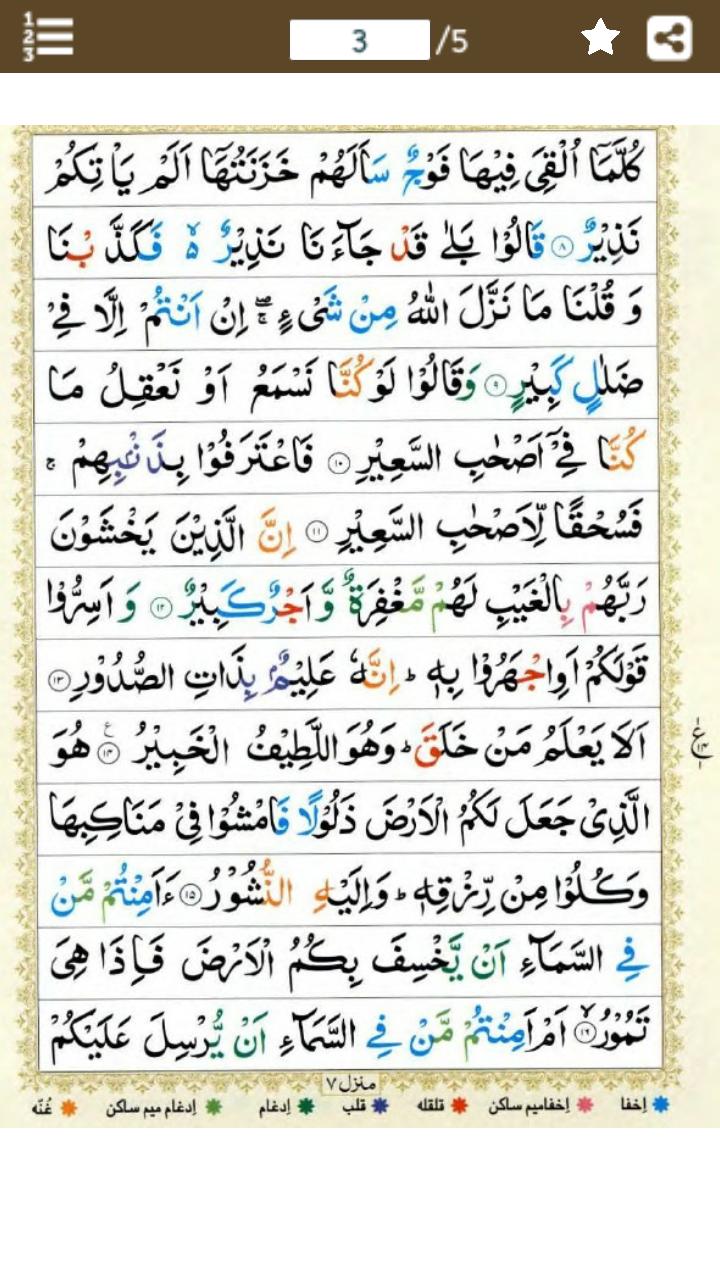 1
2
3
3 /5
كُلَّمَاۤ اُلْقِیَ فِیْهَا فَوْجٌ سَاَلَهُمْ خَزَنَتُهَاۤ اَلَمْ یَاْتِكُمْ
نَذِیْرٌ ۸ قَالُوْا بَلٰی قَدْ جَآءَنَا نَذِیْرٌ ۙ۬ فَكَذَّبْنَا
وَ قُلْنَا مَا نَزَّلَ اللّٰهُ مِنْ شَیْءٍ ۖۚ اِنْ اَنْتُمْ اِلَّا فِیْ
ضَلٰلٍ كَبِیْرٍ ۹ وَقَالُوْا لَوْ كُنَّا نَسْمَعُ اَوْ نَعْقِلُ مَا
كُنَّا فِیْۤ اَصْحٰبِ السَّعِیْرِ ۱۰ فَاعْتَرَفُوْا بِذَنْۢبِهِمْ ۚ
فَسُحْقًا لِّاَصْحٰبِ السَّعِیْرِ ۱۱ اِنَّ الَّذِیْنَ یَخْشَوْنَ
رَبَّهُمْ بِالْغَیْبِ لَهُمْ مَّغْفِرَةٌ وَّاَجْرٌ كَبِیْرٌ ۱۲ وَ اَسِرُّوْا
قَوْلَكُمْ اَوِاجْهَرُوْا بِهٖ ؕ اِنَّهٗ عَلِیْمٌۢ بِذَاتِ الصُّدُوْرِ ۱۳
اَلَا یَعْلَمُ مَنْ خَلَقَ ؕ وَهُوَ اللَّطِیْفُ الْخَبِیْرُ ۱۴ هُوَ
الَّذِیْ جَعَلَ لَكُمُ الْاَرْضَ ذَلُوْلًا فَامْشُوْا فِیْ مَنَاكِبِهَا
وَكُلُوْا مِنْ رِّزْقِهٖ ؕ وَاِلَیْهِ النُّشُوْرُ ۱۵ ءَاَمِنْتُمْ مَّنْ
فِی السَّمَآءِ اَنْ یَّخْسِفَ بِكُمُ الْاَرْضَ فَاِذَا هِیَ
تَمُوْرُ ۱۶ اَمْ اَمِنْتُمْ مَّنْ فِی السَّمَآءِ اَنْ یُّرْسِلَ عَلَیْكُمْ
منزل ۷
اِخفا اِخفامیم ساکن قلقله قلب اِدغام اِدغام میم ساکن غُنّه